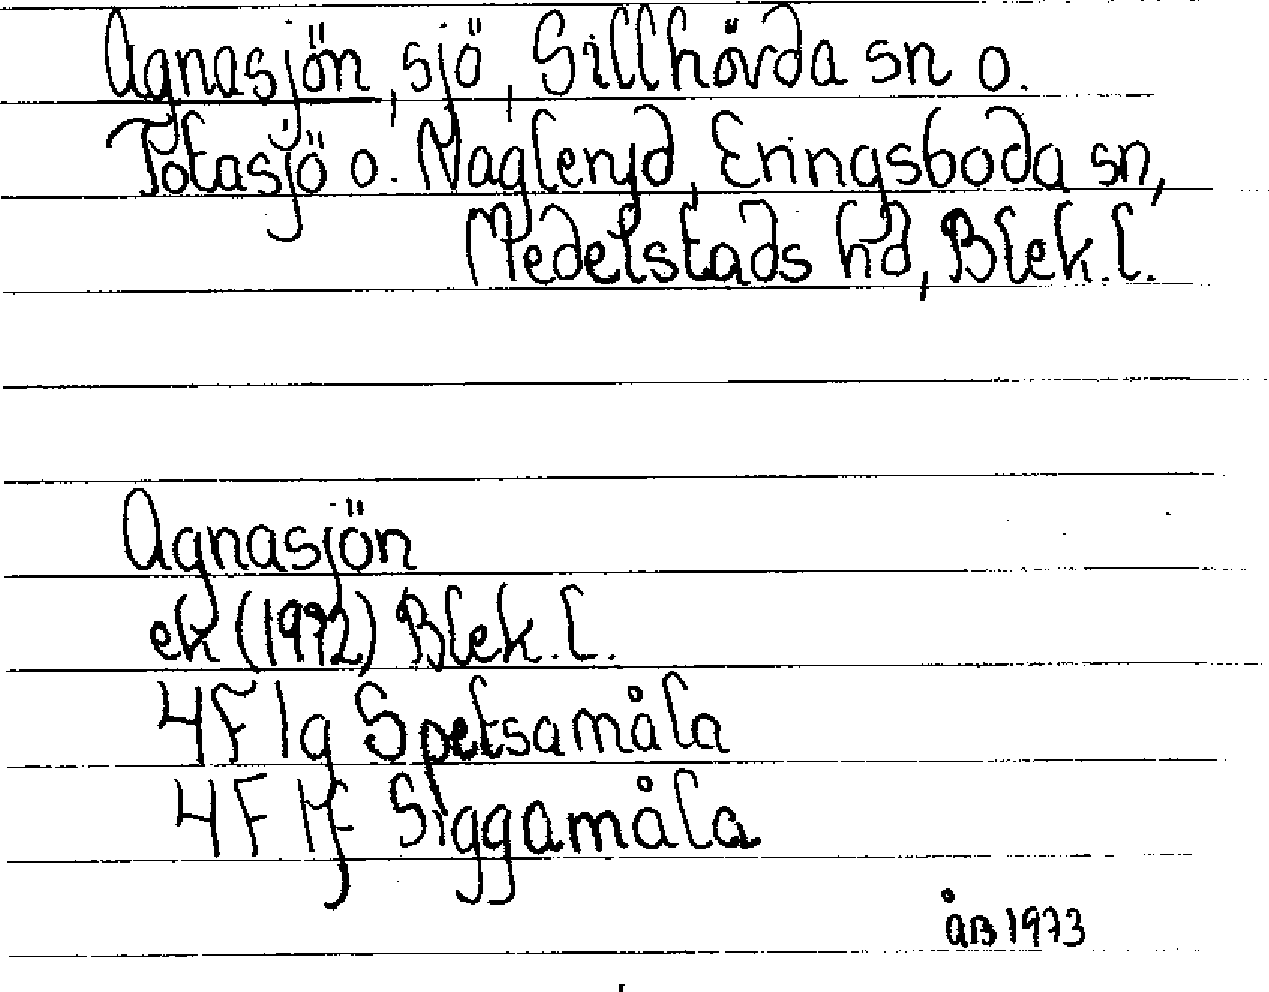 Agnasjön, sjö, Sillhövda sn o.
Totasjö o. Nagleryd, Eringsboda sn,
Medelstads hd, Blek. l.
Agnasjön
ek (1972) Blek. l.
4F 1g Spetsamåla
4F 1f Siggamåla
åB 1973